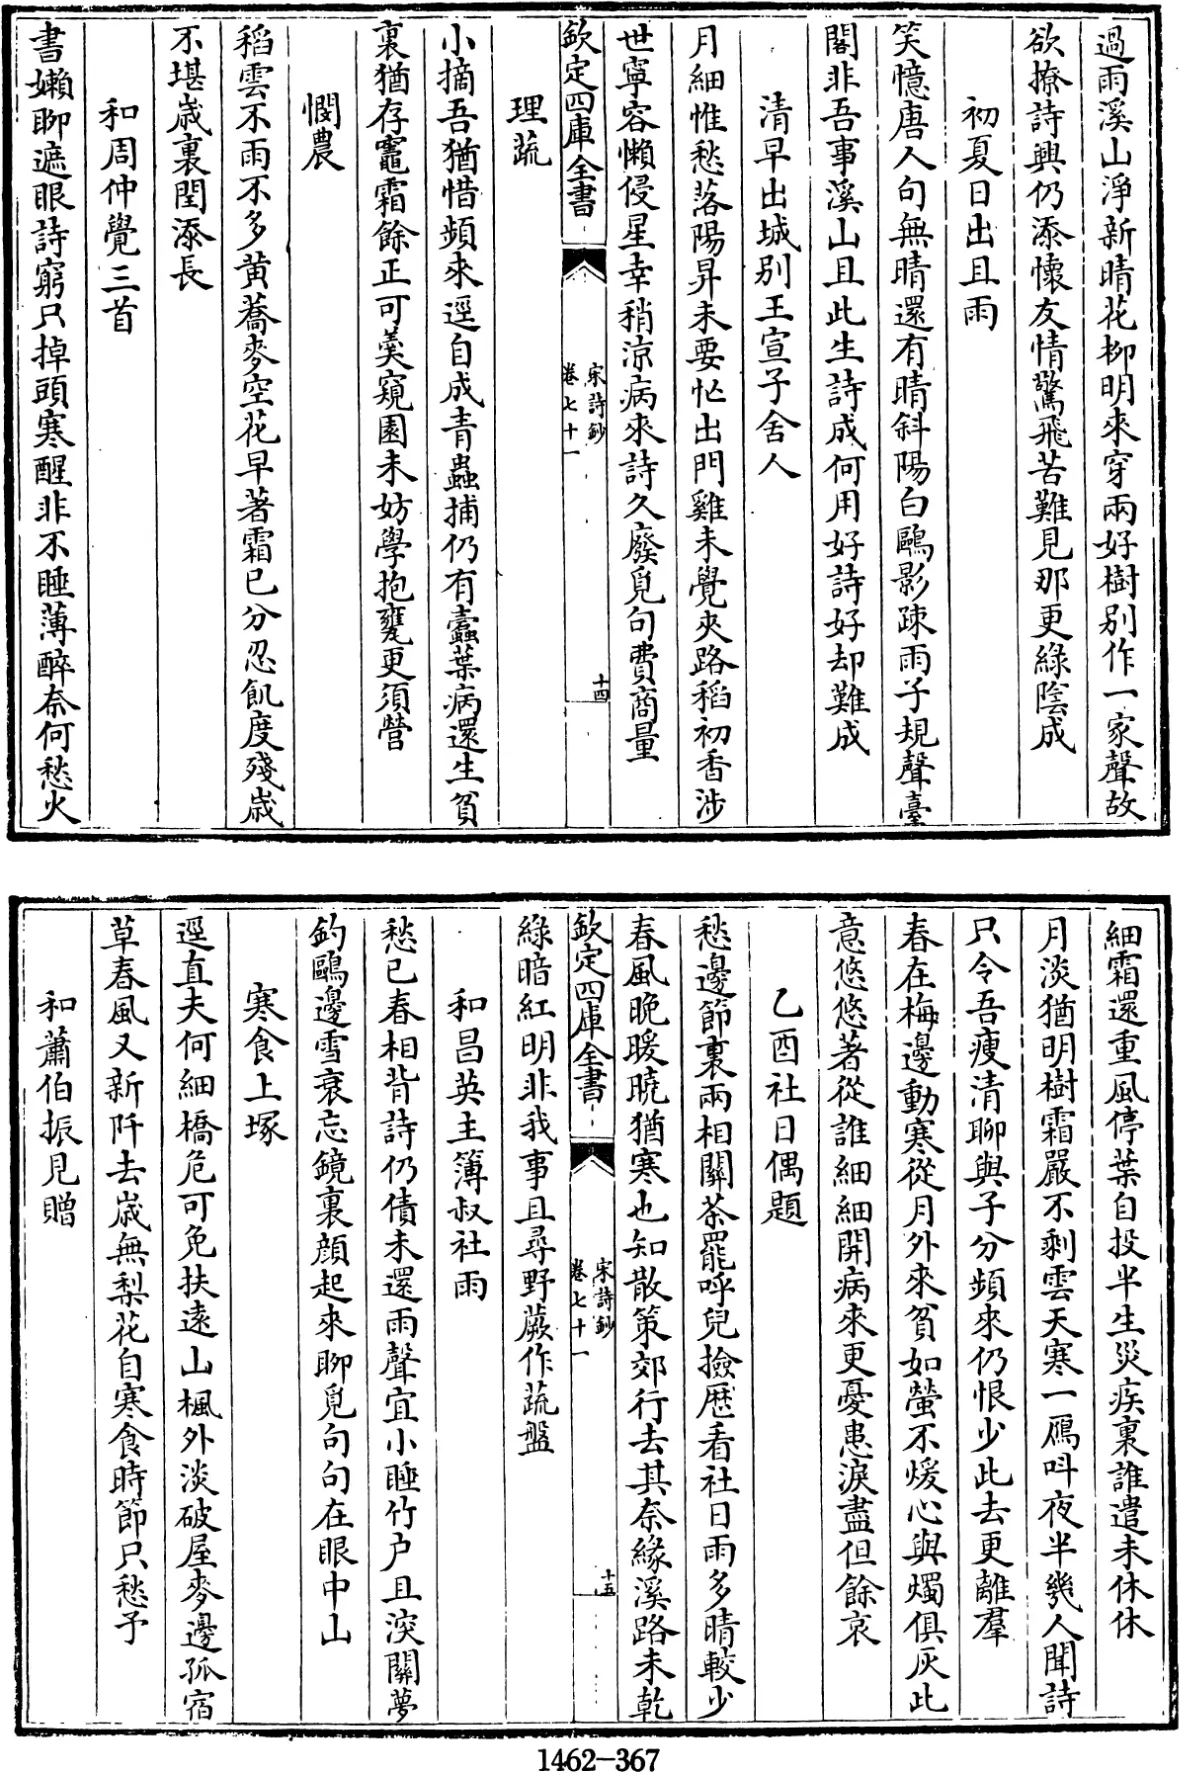 過雨溪山淨新晴花柳明來穿兩好樹别作一家聲故
欲撩詩興仍添懷友情驚飛苦難見那更綠陰成
初夏日出且雨
笑憶唐人句無晴還有晴斜陽白鷗影疎雨子規聲臺
閣非吾事溪山且此生詩成何用好詩好却難成
清早出城别王宣子舍人
月細惟愁落陽昇未要忙出門雞未覺夾路稻初香涉
世寧容懶侵星幸稍涼病來詩久廢覓句費商量
欽定四庫全書
宋詩鈔
卷七十一
十四
理蔬
小摘吾猶惜頻來逕自成青蟲捕仍有蠧葉病還生貧
裏猶存竈霜餘正可羹窺園未妨學抱甕更須營
憫農
稻雲不雨不多黄蕎麥空花早著霜已分忍飢度殘歲
不堪歲裏閏添長
和周仲覺三首
書嬾聊遮眼詩窮只掉頭寒醒非不睡薄醉奈何愁火
細霜還重風停葉自投半生災疾裏誰遣未休休
月淡猶明樹霜嚴不剩雲天寒一鴈呌夜半幾人聞詩
只令吾瘦清聊與子分頻來仍恨少此去更離羣
春在梅邊動寒從月外來貧如螢不煖心與燭俱灰此
意悠悠著從誰細細開病來更憂患淚盡但餘哀
乙酉社日偶題
愁邊節裏兩相關茶罷呼兒撿厯看社日雨多晴較少
春風晚暖曉猶寒也知散策郊行去其奈緣溪路未乾
欽定四庫全書
宋詩鈔
卷七十一
十五
綠暗紅明非我事且尋野蕨作蔬盤
和昌英主簿叔社雨
愁已春相背詩仍債未還雨聲宜小睡竹户且深關夢
釣鷗邊雪衰忘鏡裏顔起來聊覓句句在眼中山
寒食上塚
逕直夫何細橋危可免扶逺山楓外淡破屋麥邊孤宿
草春風又新阡去歲無梨花自寒食時節只愁予
和蕭伯振見贈
1462-367